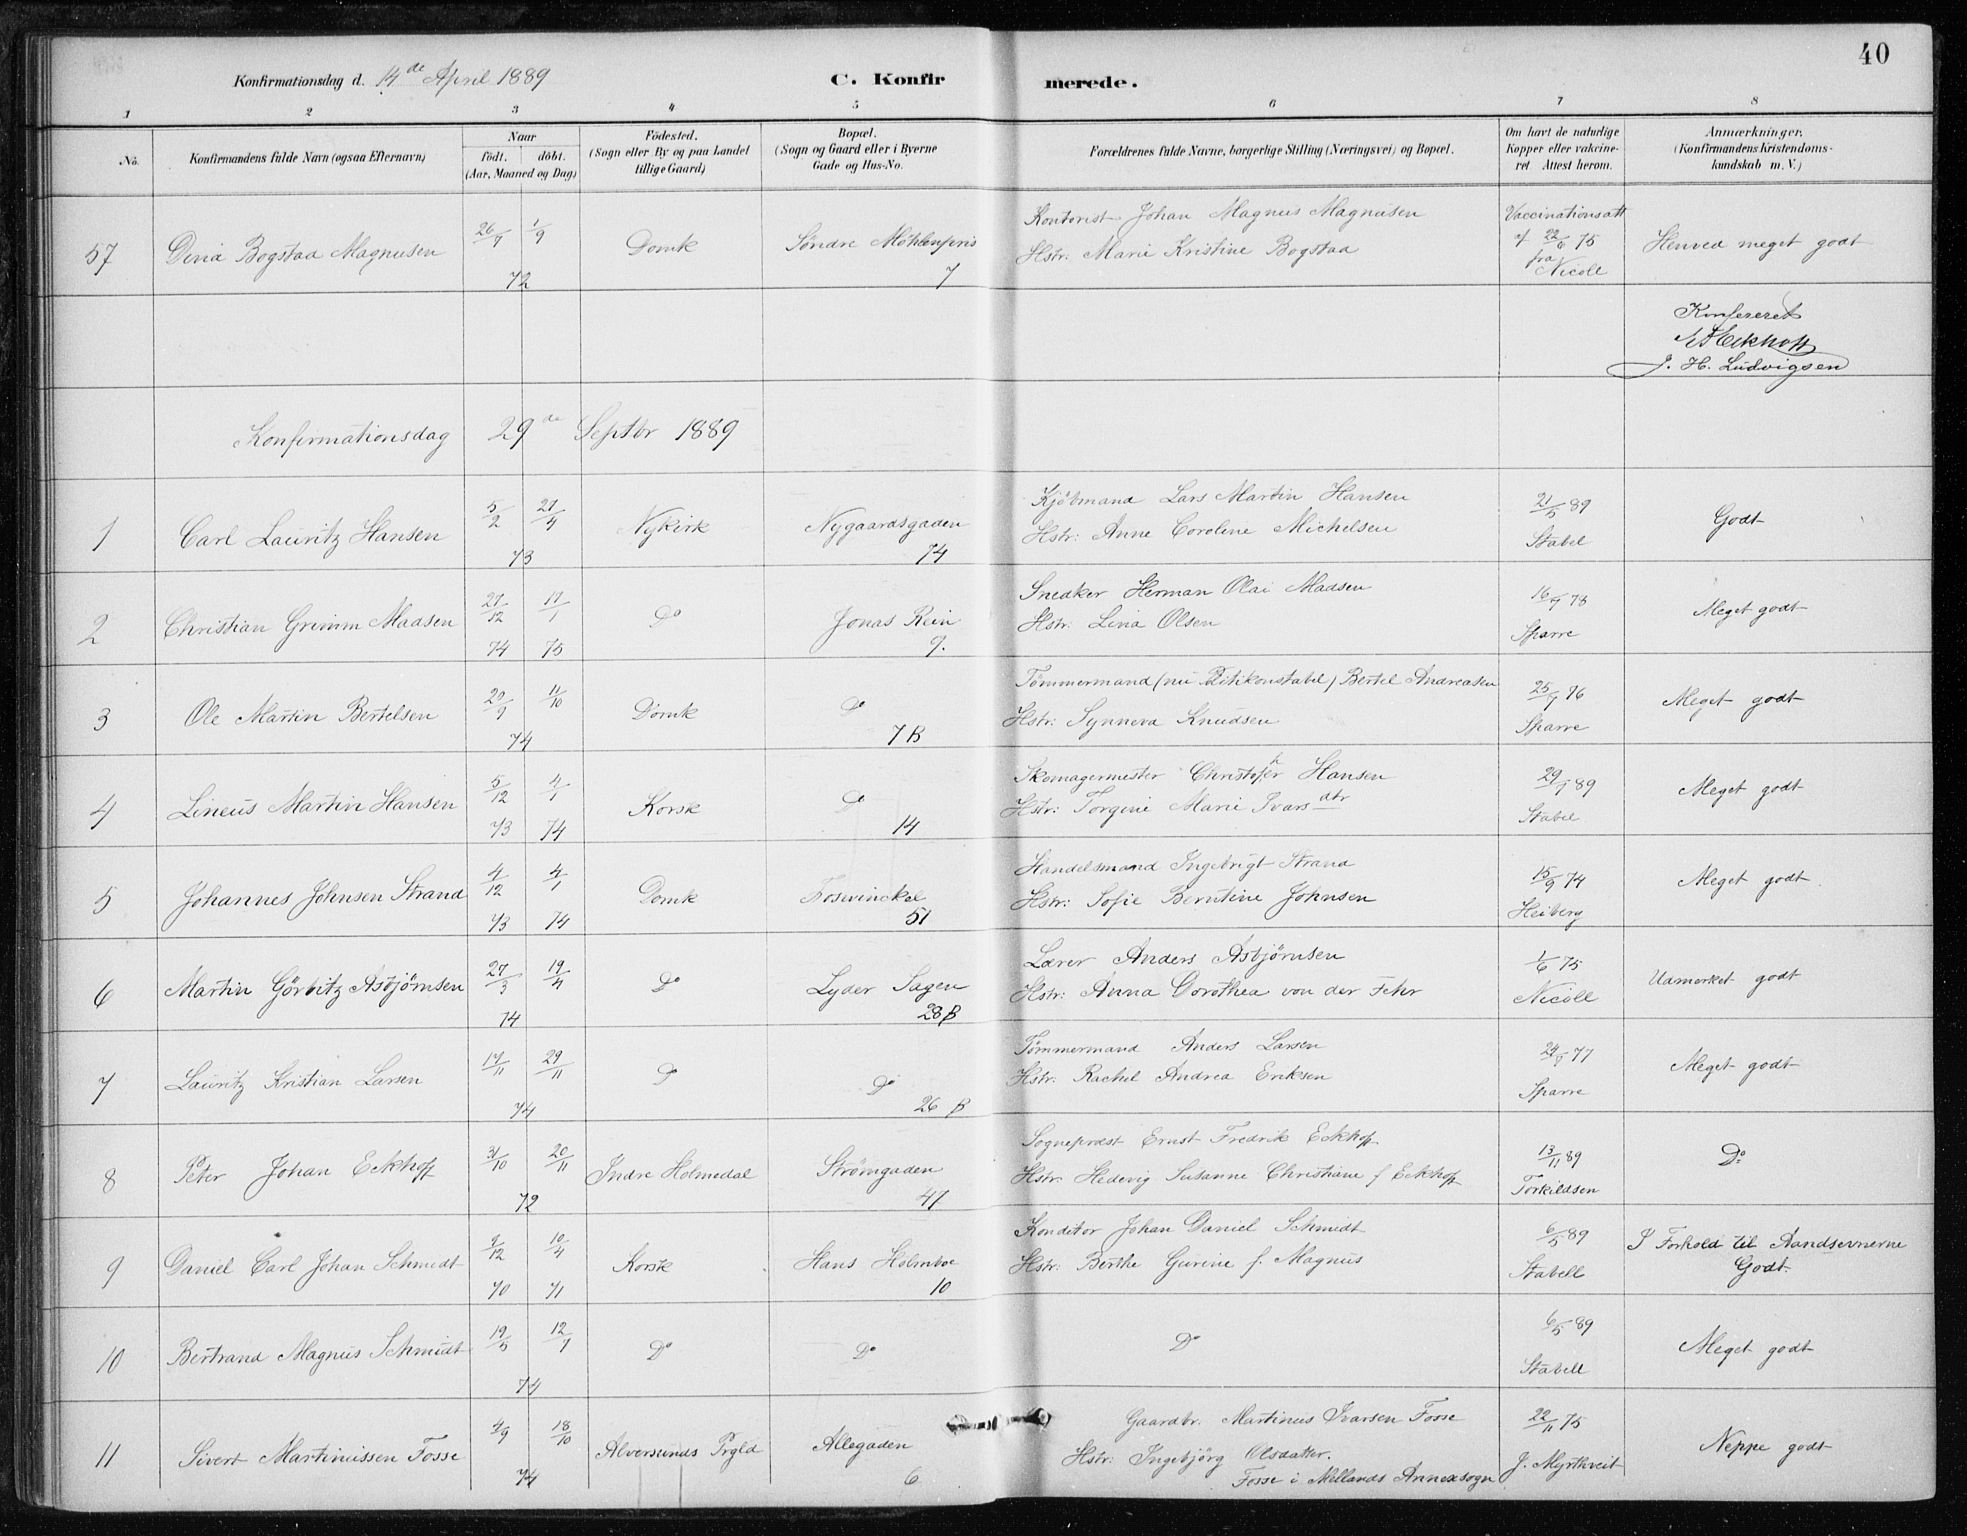 40
Konfirmationsdag d. 14de April 1889 C. Konfirmerede.
1 2 3 4 5 6 7 8
No. Konfirmandens fulde Navn (ogsaa Efternavn) Naar födt. döbt. (Aar, Maaned og Dag) Födested. (Sogn eller By og paa Landet tillige Gaard) Bopæl. (Sogn og Gaard eller i Byerne Gade og Hus-No. Forældrenes fulde Navne, borgerlige Stilling (Næringsvei) og Bopæl. Om havt de naturlige Kopper eller vakcineret Attest herom. Anmærkninger. (Konfirmandens Kristendomskundskab m. V.)
57 Divia Bogstad Magnusen 26/7 1/9 72 Domk Søndre Møhlenpris 7
Kontorist Johan Magnus Magnusen
Hstr: Marie Kristine Bogstad
Vaccinationsatt
af 22/6 75
fra Nicoll
Henved meget godt
Konfereret
Eckhoff
J. H. Ludvigsen
Konfirmationsdag 29de Septbr 1889
1 Carl Lauritz Hansen 5/2 27/4 73 Nykirk Nygaardsgaden 74
Kjöbmand Lars Martin Hansen
Hstr: Anne Caroline Michelsen
21/5 89
Stabel
Godt
2 Christian Grimm Madsen 27/12 74 17/1 75 Do Jonas Rein 9.
Snedker Herman Olai Madsen
Hstr: Lina Olsen
16/9 78
Sparre
Meget godt
3 Ole Martin Bertelsen 20/9 11/10 74 Domk Do 7 B
Tømmermand (nu Politikonstabel) Bertel Andreasen
Hstr: Synneva Knudsen
25/9 76
Sparre
Meget godt
4 Lineus Martin Hansen 5/12 73 4/1 74 Korsk Do 14
Skomagermester Christofer Hansen
Hstr: Torgine Marie Ivarsdtr
29/ 89
Stabel
Meget godt
5 Johannes Johnsen Strand 4/12 73 4/1 74 Domk Foswinckel 51
Handelsmand Ingebrigt Strand
Hstr: Sofie Berntine Johnsen
15/9 74
Heiberg
Meget godt
6 Martin Görbitz Asbjörnsen 27/3 19/4 74 Do Lyder Sagen 28 B
Lærer Anders Asbjørnsen
Hstr: Anna Dorothea von der Fehr
1/6 75
Nicoll
Udmerket godt
7 Lauritz Kristian Larsen 17/11 29/11 74 Do Do 26 B
Tømmermand Anders Larsen
Hstr: Rachel Andrea Eriksen
24/ 77
Sparre
Meget godt
8 Peter Johan Eckhoff 31/10 20/11 72 Indre Holmedal Strömgaden 47
Sogneprest Ernst Fredrik Eckhoff
Hstr. Hedevig Susanne Christiane f Eckhoff
13/11 89
Torkildsen
Do
9 Daniel Carl Johan Schmidt 9/12 70 10/4 71 Korsk Hans Holmboe 10
Konditor Johan Daniel Schmidt
Hstr: Birthe Gurine f. Magnus
6/5 89
Stabell
I Forhold til Aandsevnerne
Godt.
10 Bertrand Magnus Schmidt 19/5 12/7 74 Do Do
Do
6/5 89
Stabell
Meget godt
11 Sivert Martinussen Fosse 4/9 18/10 74 Alversunds Prgld Allegaden 6
Gaardbr. Martinus Ivarsen Fosse
Hstr: Ingebjörg Olsdatter.
Fosse i Mellands Annexsogn
22/11 75
J. Myrthveit
Neppe godt